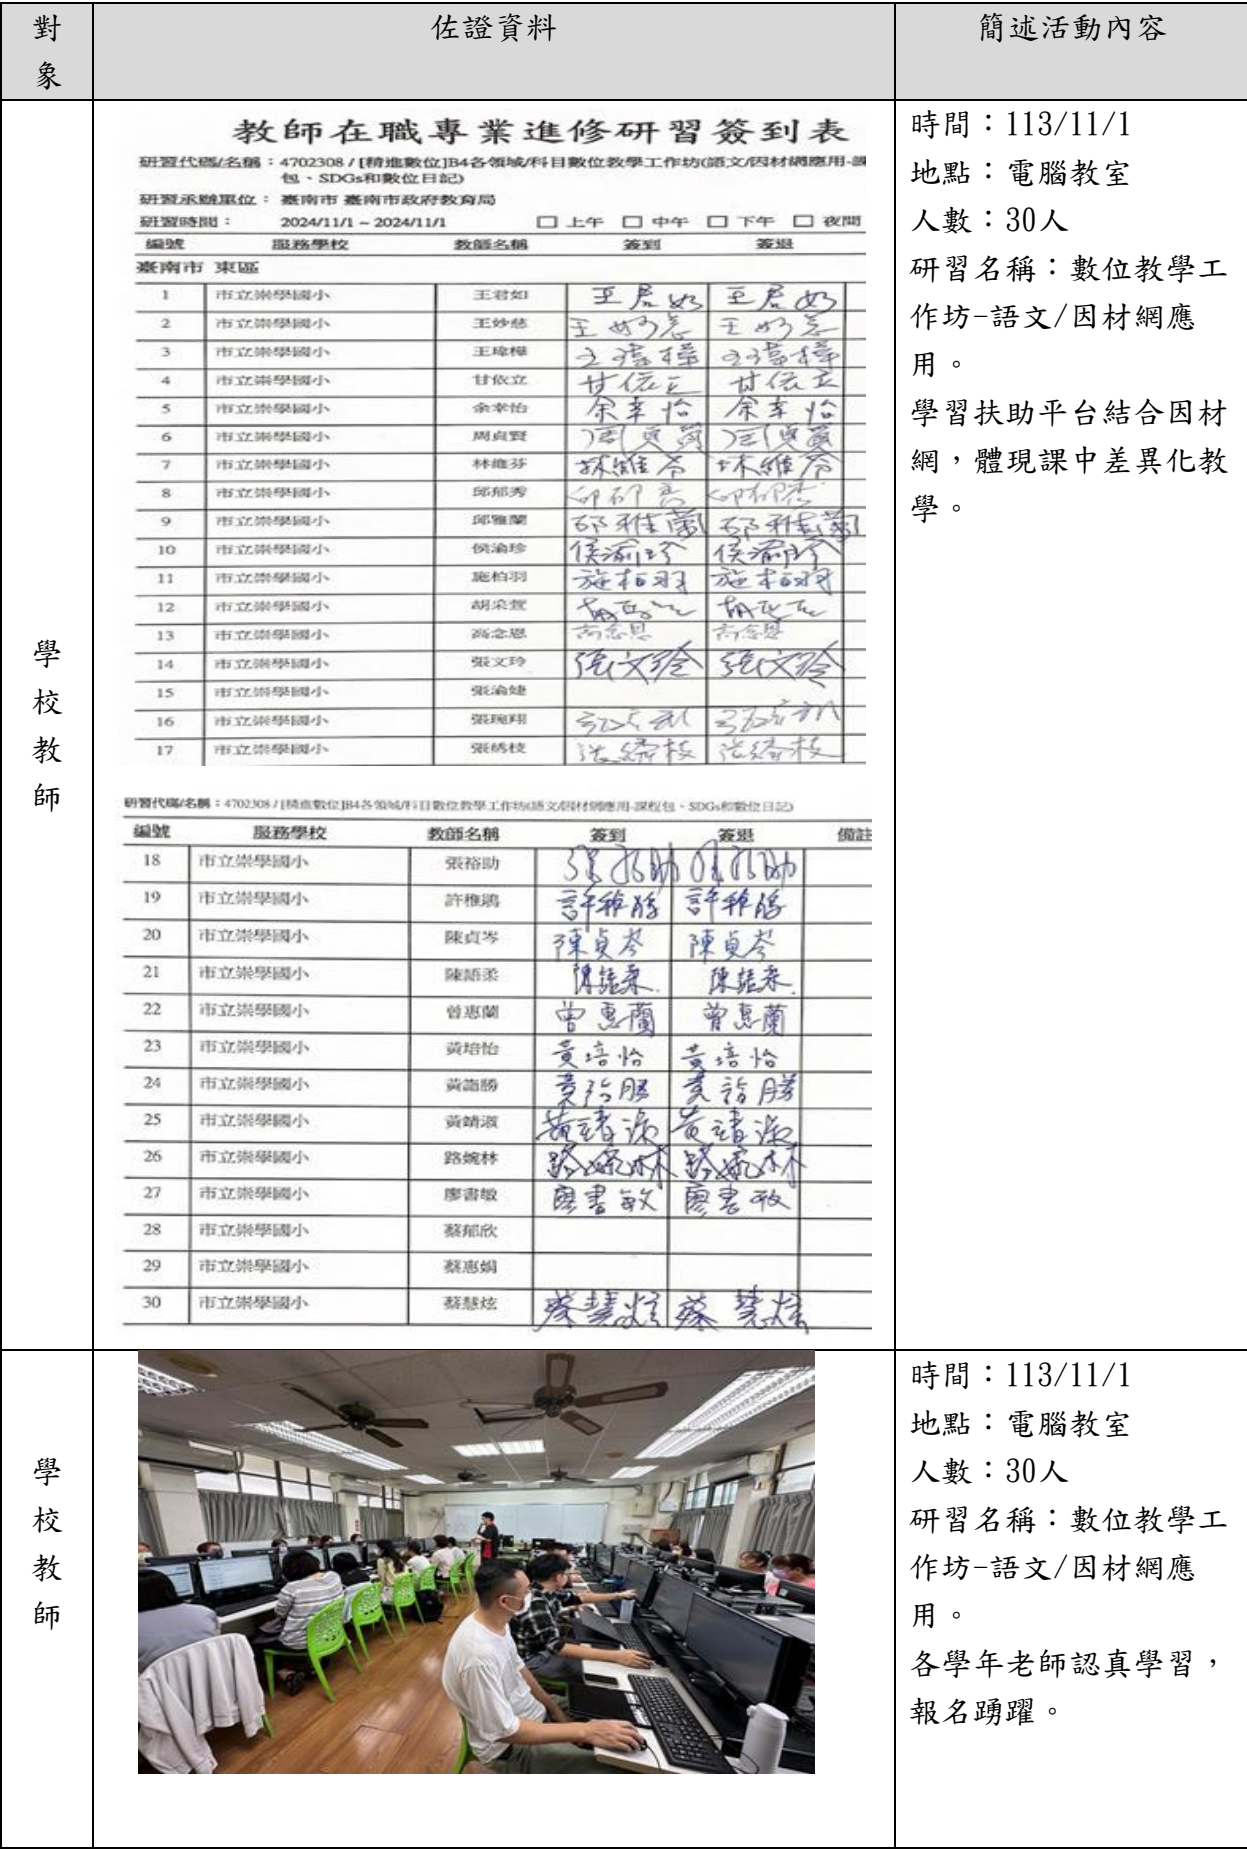 對象 佐證資料 簡述活動內容
教師在職專業進修研習簽到表
研習代碼/名稱：4702308 / [精進數位]B4各領域/科目數位教學工作坊(語文/因材網應用-課
包、SDGs和數位日記)
研習承辦單位： 臺南市 臺南市政府教育局
研習時間： 2024/11/1 ~ 2024/11/1 □ 上午 □ 中午 □ 下午 □ 夜間
編號 服務學校 教師名稱 簽到 簽退
臺南市 東區
1 市立崇學國小 王君如 王君如 王君如
2 市立崇學國小 王妙慈 王妙慈 王妙慈
3 市立崇學國小 王瑋樺 王瑋樺 王瑋樺
4 市立崇學國小 甘依立 甘依立 甘依立
5 市立崇學國小 余幸怡 余幸怡 余幸怡
6 市立崇學國小 周貞賢
7 市立崇學國小 林維芬 林維芬 林維芬
8 市立崇學國小 邱郁秀
9 市立崇學國小 邱雅蘭 邱雅蘭 邱雅蘭
10 市立崇學國小 侯渝珍 侯渝珍 侯渝珍
11 市立崇學國小 施柏羽 施柏羽 施柏羽
12 市立崇學國小 胡采萱
13 市立崇學國小 高念恩 高念恩 高念恩
14 市立崇學國小 張文玲 張文玲 張文玲
15 市立崇學國小 張渝婕
16 市立崇學國小 張琬翔
17 市立崇學國小 張綉枝
研習代碼/名稱：4702308 / [精進數位]B4各領域/科目數位教學工作坊(語文/因材網應用-課程包、SDGs和數位日記)
編號 服務學校 教師名稱 簽到 簽退 備註
18 市立崇學國小 張裕助
19 市立崇學國小 許稚鴻
20 市立崇學國小 陳貞岑 陳貞岑 陳貞岑
21 市立崇學國小 陳語柔 陳語柔 陳語柔
22 市立崇學國小 曾惠蘭 曾惠蘭 曾惠蘭
23 市立崇學國小 黃培怡 黃培怡 黃培怡
24 市立崇學國小 黃詣勝 黃詣勝 黃詣勝
25 市立崇學國小 黃靖淑 黃靖淑 黃靖淑
26 市立崇學國小 路婉林 路婉林 路婉林
27 市立崇學國小 廖書敏 廖書敏 廖書敏
28 市立崇學國小 蔡郁欣
29 市立崇學國小 蔡惠娟
30 市立崇學國小 蔡慧炫 蔡慧炫 蔡慧炫
學校教師
時間：113/11/1
地點：電腦教室
人數：30人
研習名稱：數位教學工
作坊-語文/因材網應
用。
學習扶助平台結合因材
網，體現課中差異化教
學。
學校教師
時間：113/11/1
地點：電腦教室
人數：30人
研習名稱：數位教學工
作坊-語文/因材網應
用。
各學年老師認真學習，
報名踴躍。